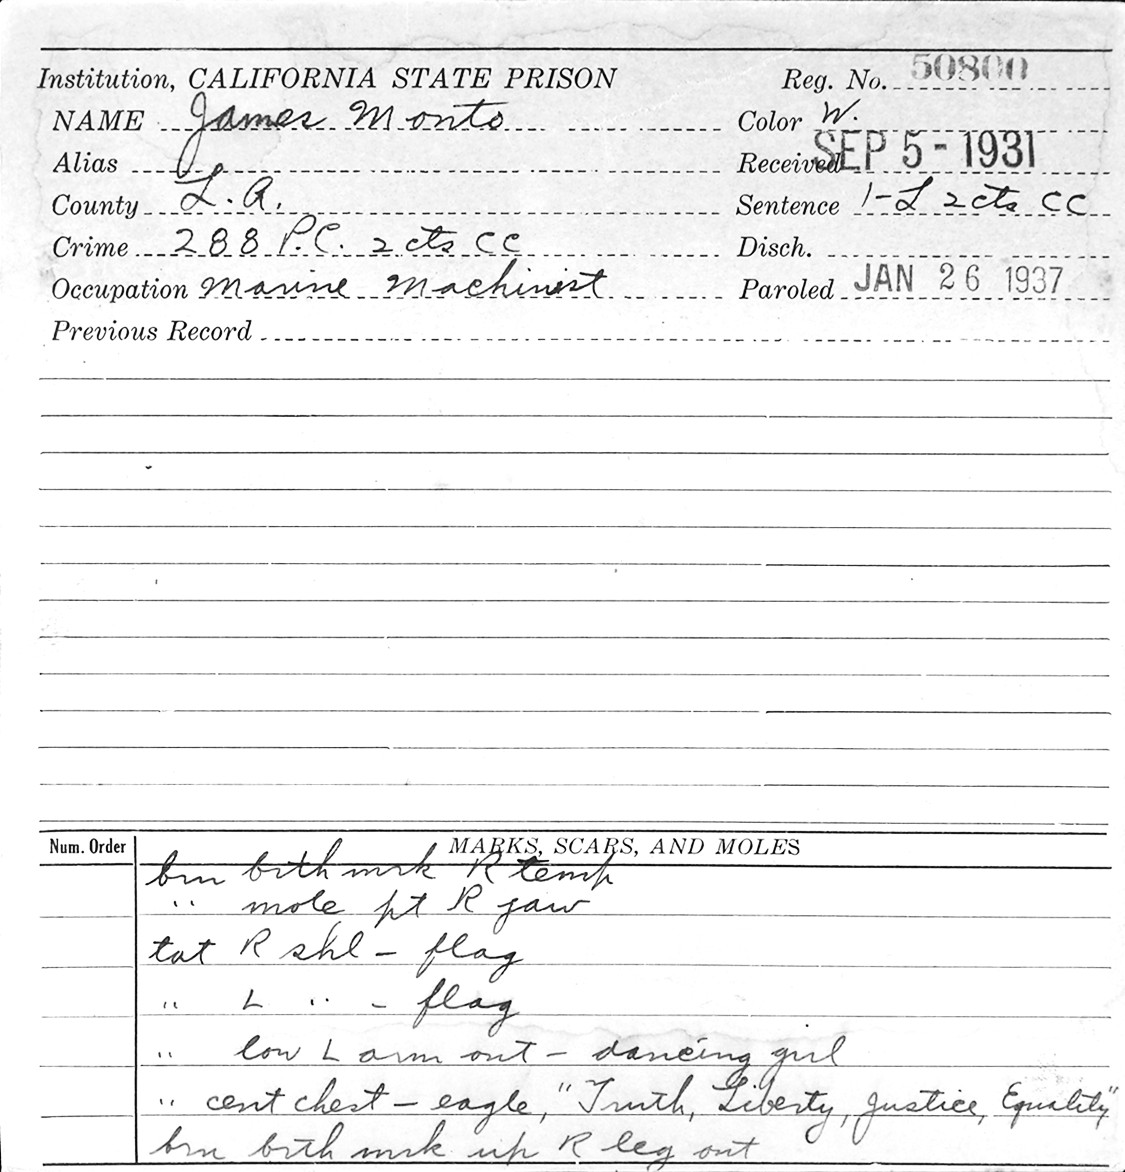 Institution, CALIFORNIA STATE PRISON Reg. No. 50800
NAME James Monto Color W.
Alias Received SEP 5 - 1931
County L.A. Sentence 1-L 2 cts CC
Crime 288 P.C. 2 cts CC Disch.
Occupation Marine Machinist Paroled JAN 26 1937
Previous Record
Num. Order MARKS, SCARS, AND MOLES
brn brth mrk R temp
" mole pt R jaw
tat R shl - flag
" L " - flag
" low L arm out - dancing girl
" cent chest - eagle, "Truth, Liberty, Justice, Equality"
brn brth mrk up R leg out